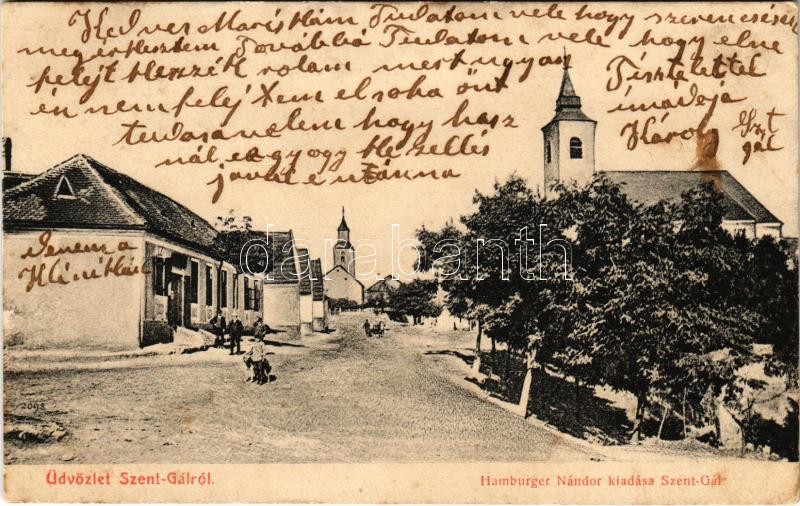 Kedves Mariskám Tudatom vele hogy szerencsésen
meg érkeztem Továbbá Tudatom vele hogy elne
felejt kezzék rolam mert ugyan
én nem felejtem el soha önt
hogy hasz
nál e a gyogy kezellés
javúl e utánna
Tisztelettel
imádoja
Károly
Szt
gál
darabanth.com
2098
Üdvözlet Szent-Gálról.
Hamburger Nándor kiadása Szent-Gál